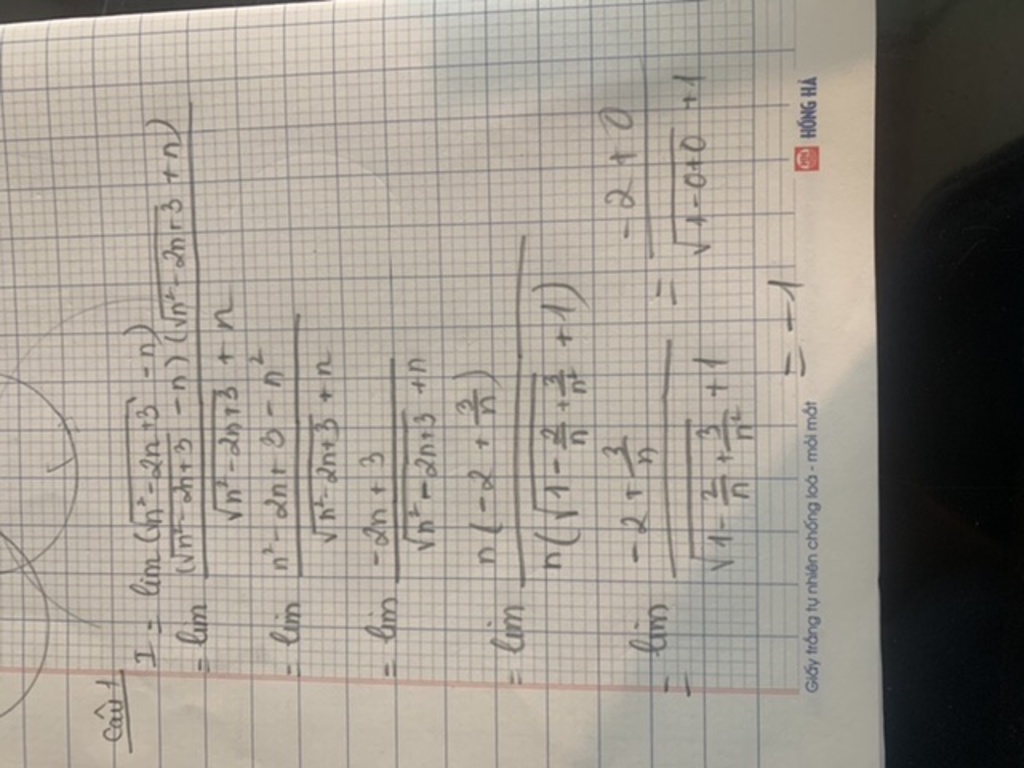 Câu 1
I = lim (√(n² - 2n + 3) - n)
= lim ((√(n² - 2n + 3) - n) (√(n² - 2n + 3) + n)) / (√(n² - 2n + 3) + n)
= lim (n² - 2n + 3 - n²) / (√(n² - 2n + 3) + n)
= lim (-2n + 3) / (√(n² - 2n + 3) + n)
= lim (n(-2 + 3/n)) / (n(√(1 - 2/n + 3/n²) + 1))
= lim (-2 + 3/n) / (√(1 - 2/n + 3/n²) + 1) = (-2 + 0) / (√(1 - 0 + 0) + 1)
= -1
Giấy trắng tự nhiên chống loá - mỏi mắt HỒNG HÀ